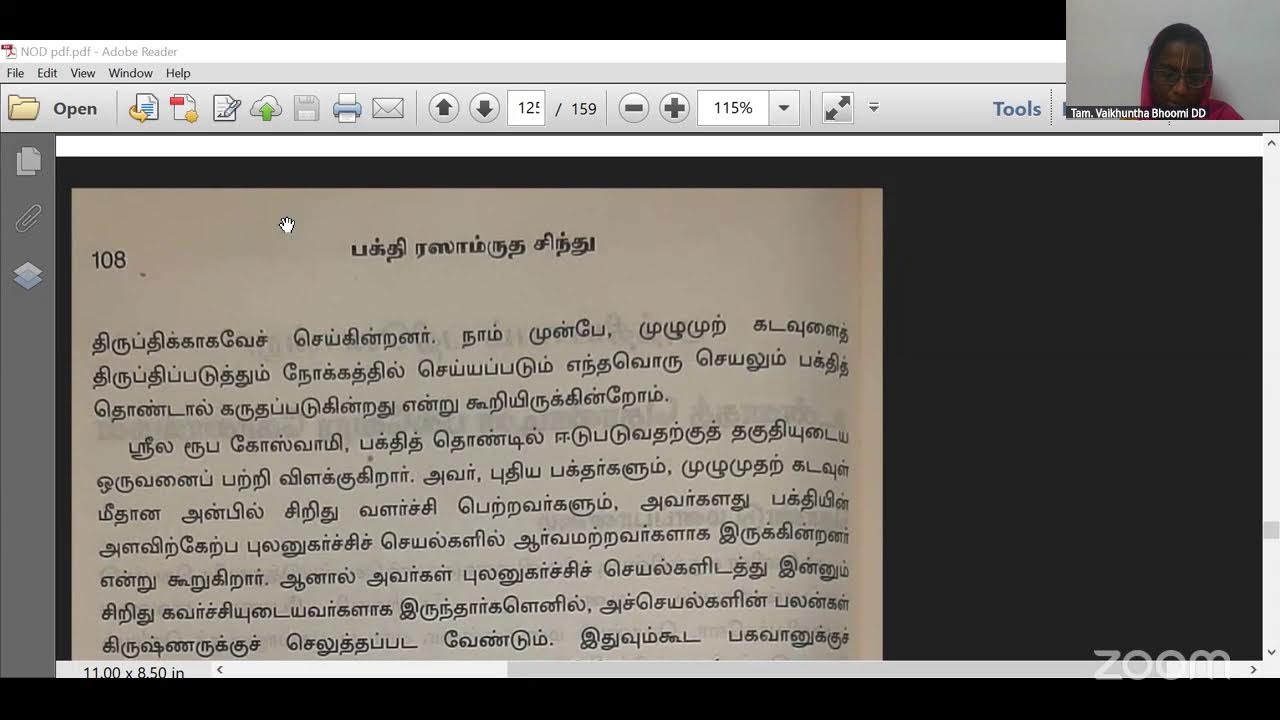 NOD pdf.pdf - Adobe Reader
File Edit View Window Help
Open 125 / 159 115% Tools
Tam. Vaikhuntha Bhoomi DD
108 பக்தி ரஸாம்ருத சிந்து
திருப்திக்காகவேச் செய்கின்றனர். நாம் முன்பே, முழுமுற் கடவுளைத்
திருப்திப்படுத்தும் நோக்கத்தில் செய்யப்படும் எந்தவொரு செயலும் பக்தித்
தொண்டால் கருதப்படுகின்றது என்று கூறியிருக்கின்றோம்.
ஸ்ரீல ரூப கோஸ்வாமி, பக்தித் தொண்டில் ஈடுபடுவதற்குத் தகுதியுடைய
ஒருவனைப் பற்றி விளக்குகிறார். அவர், புதிய பக்தர்களும், முழுமுதற் கடவுள்
மீதான அன்பில் சிறிது வளர்ச்சி பெற்றவர்களும், அவர்களது பக்தியின்
அளவிற்கேற்ப புலனுகர்ச்சிச் செயல்களில் ஆர்வமற்றவர்களாக இருக்கின்றனர்
என்று கூறுகிறார். ஆனால் அவர்கள் புலனுகர்ச்சிச் செயல்களிடத்து இன்னும்
சிறிது கவர்ச்சியுடையவர்களாக இருந்தார்களெனில், அச்செயல்களின் பலன்கள்
கிருஷ்ணருக்குச் செலுத்தப்பட வேண்டும். இதுவும்கூட பகவானுக்குச்
11.00 x 8.50 in
zoom